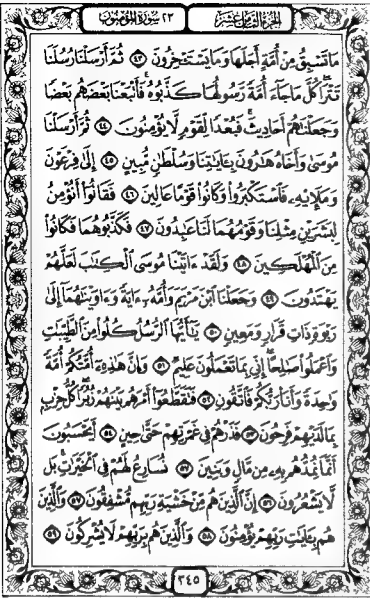 الجزء الثامن عشر
٢٣ سورة المؤمنون
مَا تَسْبِقُ مِنْ أُمَّةٍ أَجَلَهَا وَمَا يَسْتَـْٔخِرُونَ ٤٣ ثُمَّ أَرْسَلْنَا رُسُلَنَا
تَتْرَا كُلَّ مَا جَآءَ أُمَّةً رَّسُولُهَا كَذَّبُوهُ فَأَتْبَعْنَا بَعْضَهُم بَعْضًا
وَجَعَلْنَٰهُمْ أَحَادِيثَ فَبُعْدًا لِّقَوْمٍ لَّا يُؤْمِنُونَ ٤٤ ثُمَّ أَرْسَلْنَا
مُوسَىٰ وَأَخَاهُ هَٰرُونَ بِـَٔايَٰتِنَا وَسُلْطَٰنٍ مُّبِينٍ ٤٥ إِلَىٰ فِرْعَوْنَ
وَمَلَإِي۟هِۦ فَٱسْتَكْبَرُوا۟ وَكَانُوا۟ قَوْمًا عَالِينَ ٤٦ فَقَالُوٓا۟ أَنُؤْمِنُ
لِبَشَرَيْنِ مِثْلِنَا وَقَوْمُهُمَا لَنَا عَٰبِدُونَ ٤٧ فَكَذَّبُوهُمَا فَكَانُوا۟
مِنَ ٱلْمُهْلَكِينَ ٤٨ وَلَقَدْ ءَاتَيْنَا مُوسَى ٱلْكِتَٰبَ لَعَلَّهُمْ
يَهْتَدُونَ ٤٩ وَجَعَلْنَا ٱبْنَ مَرْيَمَ وَأُمَّهُۥٓ ءَايَةً وَءَاوَيْنَٰهُمَآ إِلَىٰ
رَبْوَةٍ ذَاتِ قَرَارٍ وَمَعِينٍ ٥٠ يَٰٓأَيُّهَا ٱلرُّسُلُ كُلُوا۟ مِنَ ٱلطَّيِّبَٰتِ
وَٱعْمَلُوا۟ صَٰلِحًا إِنِّى بِمَا تَعْمَلُونَ عَلِيمٌ ٥١ وَإِنَّ هَٰذِهِۦٓ أُمَّتُكُمْ أُمَّةً
وَٰحِدَةً وَأَنَا۠ رَبُّكُمْ فَٱتَّقُونِ ٥٢ فَتَقَطَّعُوٓا۟ أَمْرَهُم بَيْنَهُمْ زُبُرًا كُلُّ حِزْبٍۭ
بِمَا لَدَيْهِمْ فَرِحُونَ ٥٣ فَذَرْهُمْ فِى غَمْرَتِهِمْ حَتَّىٰ حِينٍ ٥٤ أَيَحْسَبُونَ
أَنَّمَا نُمِدُّهُم بِهِۦ مِن مَّالٍ وَبَنِينَ ٥٥ نُسَارِعُ لَهُمْ فِى ٱلْخَيْرَٰتِ بَل
لَّا يَشْعُرُونَ ٥٦ إِنَّ ٱلَّذِينَ هُم مِّنْ خَشْيَةِ رَبِّهِم مُّشْفِقُونَ ٥٧ وَٱلَّذِينَ
هُم بِـَٔايَٰتِ رَبِّهِمْ يُؤْمِنُونَ ٥٨ وَٱلَّذِينَ هُم بِرَبِّهِمْ لَا يُشْرِكُونَ ٥٩
٣٤٥